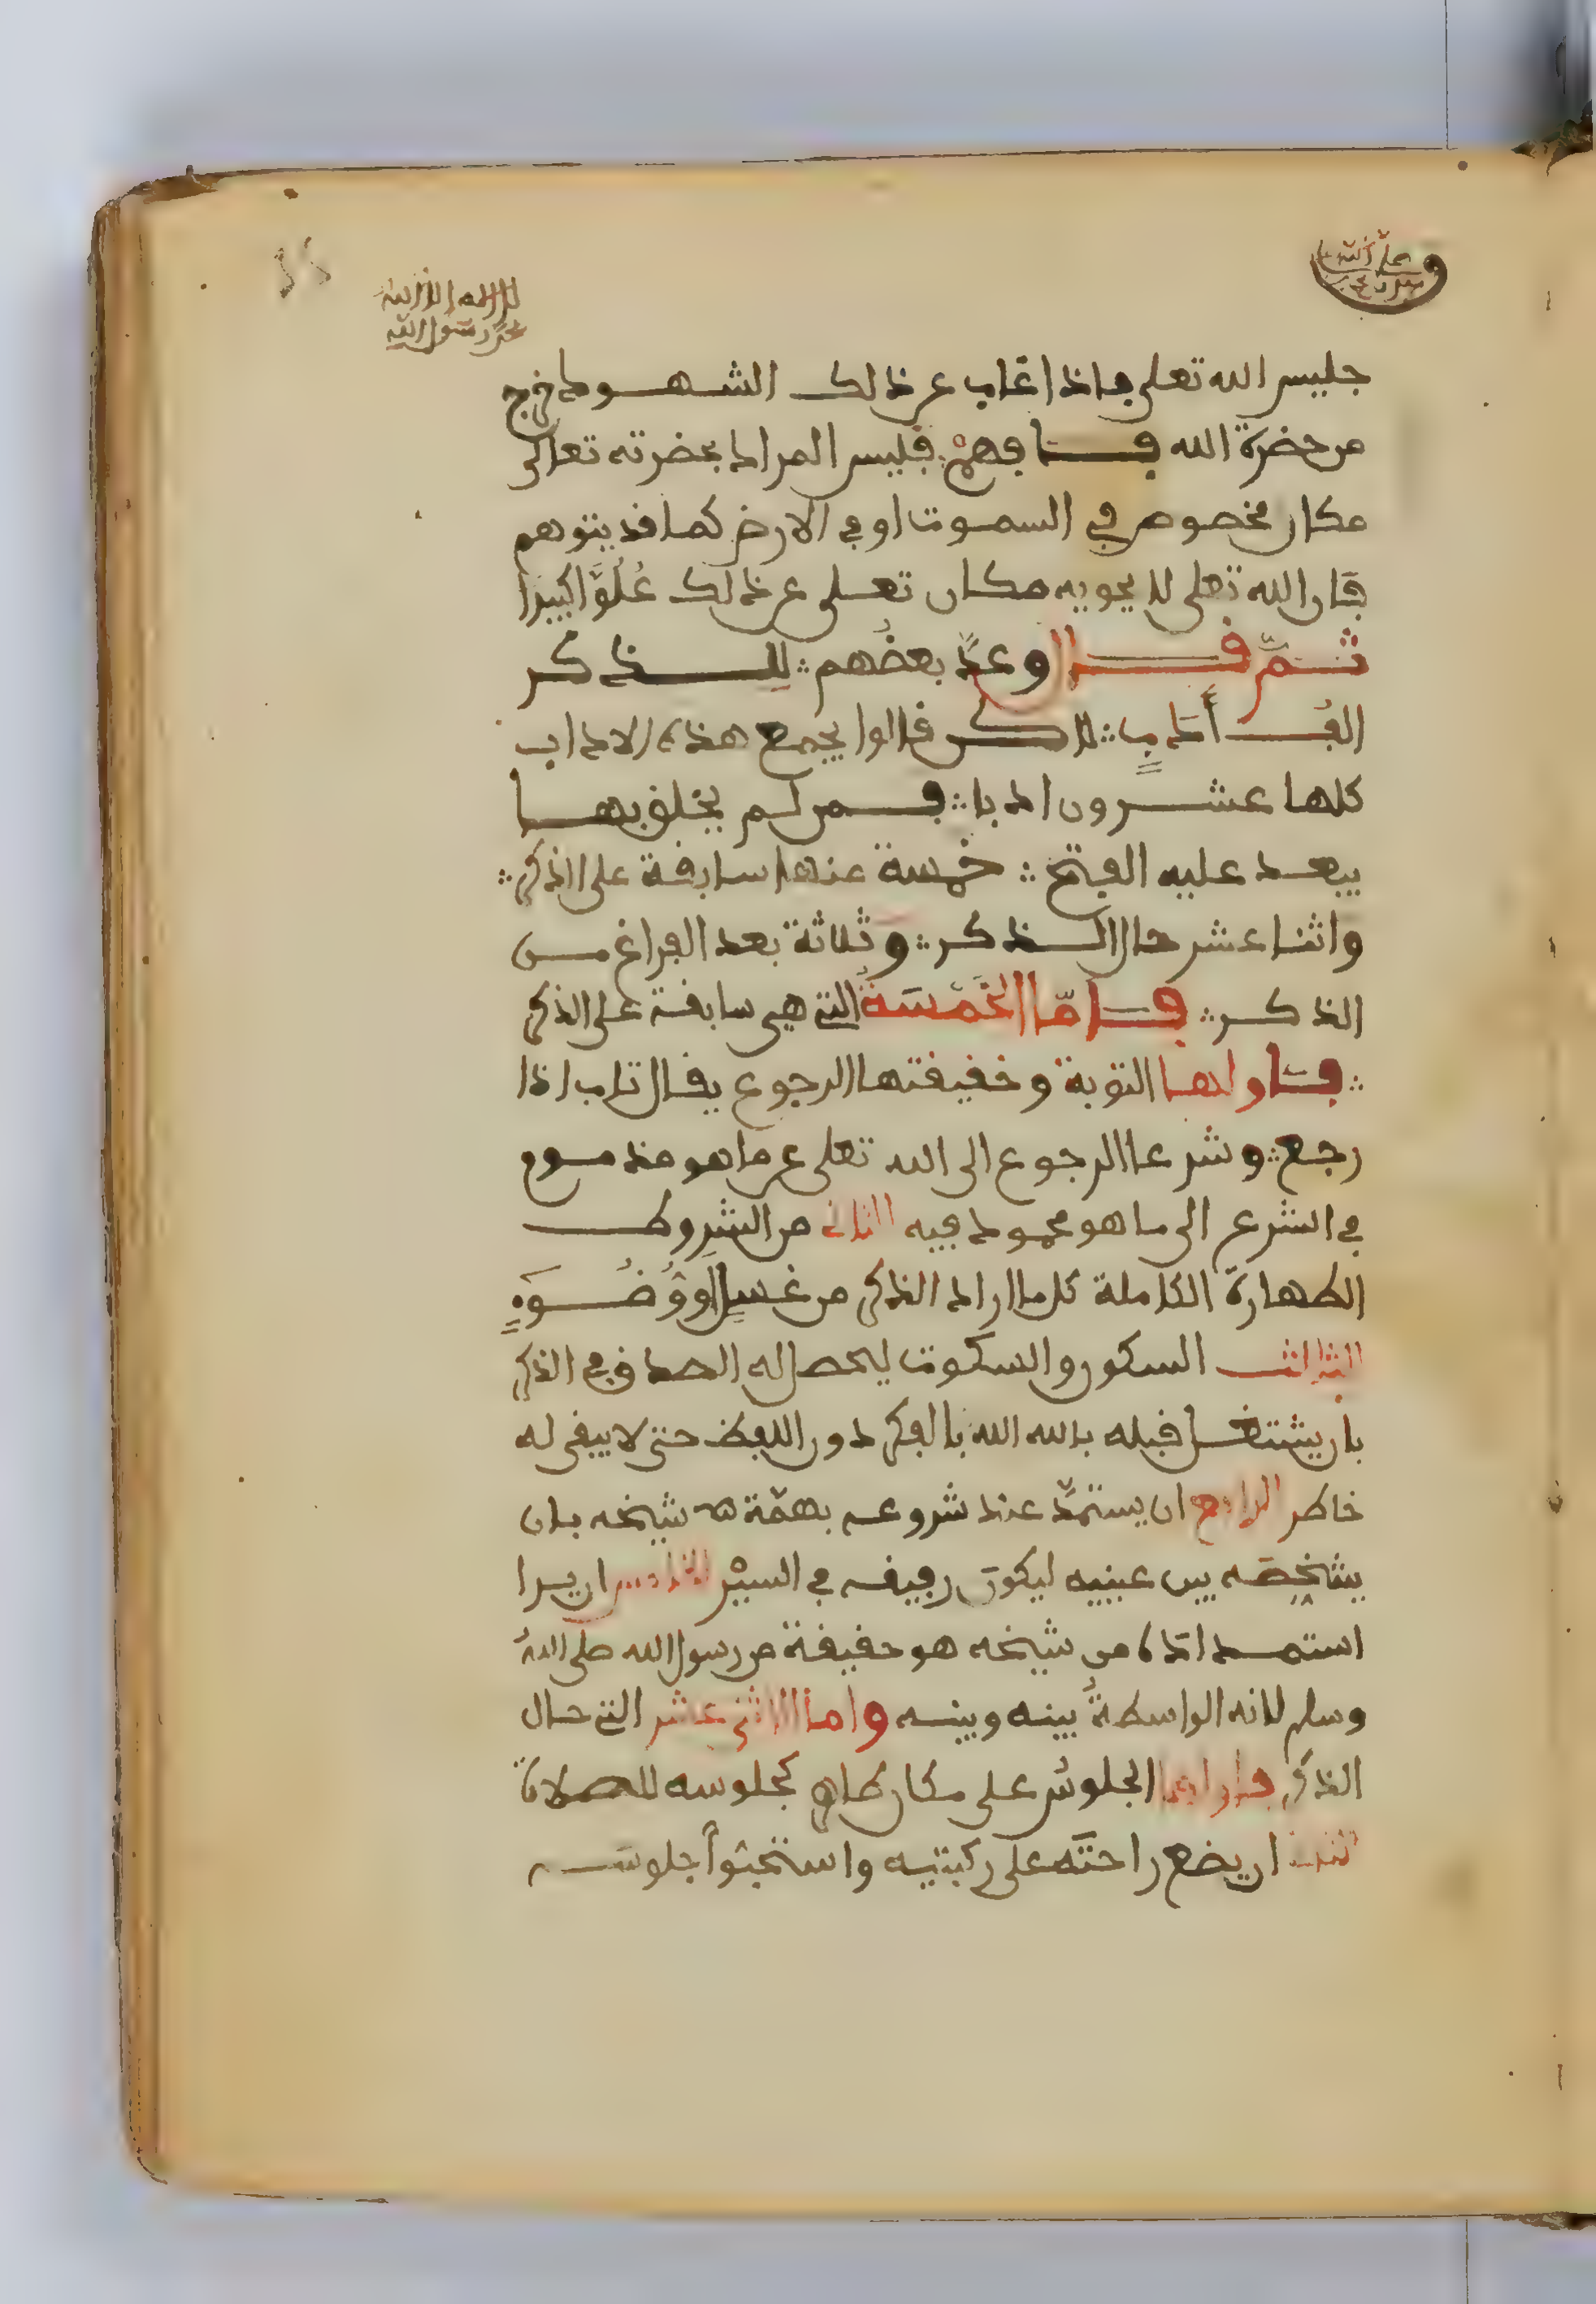 لا اله الا الله
محمد رسول الله
جليس الله تعلى فاذا غاب عن ذلك الشهود خرج
من حضرة الله فافهم ؞ فليس المراد بحضرته تعالى
مكان مخصوص في السموت او في الارض كما قد يتوهم
فان الله تعلى لا يحويه مكان تعلى عن ذلك عُلُوًّا كبيرا
ثمّ قالوا وعدّ بعضُهم ؞ للذكر
الف أدبٍ ؞ لاكن قالوا يجمع هذه الاداب
كلها عشرون ادبا ؞ فمن لم يخلق بها
يبعد عليه الفتح ؞ خمسة منها سابقة على الذكر ؞
واثنا عشر حال الذكر ؞ وثلاثة بعد الفراغ من
الذكر ؞ فامّا الخَمْسَةُ التي هي سابقة على الذكر
؞ فاولها التوبة وحقيقتها الرجوع يقال تاب اذا
رجع ؞ وشرعا الرجوع الى الله تعلى عن ما هو مذموم
في الشرع الى ما هو محمود فيه الثاني من الشروط
الطهارة الكاملة كل ما اراد الذكر من غسلٍ او وُضُوءٍ
الثالث السكون والسكوت ليحصل له الصدق في الذكر
بان يشتغل قبله بالله الله بالفكر دون اللفظ حتى لا يبقى له
خاطر الرابع ان يستمدّ عند شروعه بهمّة شيخه بان
يشخصه بين عينيه ليكون رفيقه في السيْر الخامس ان يرا
استمداده من شيخه هو حقيقة من رسول الله صلى الله
وسلم لانه الواسطةُ بينه وبينه واما الاثنى عشر التي حال
الذكر فاولها الجلوسُ على مكان طاهر كجلوسه للصلاة
الثاني ان يضع راحته على ركبتيه واستحبّوا جلوسه